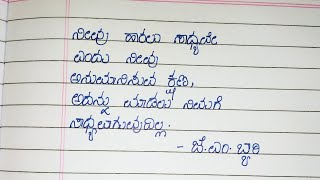 ನೀವು ಹಾರಲು ಸಾಧ್ಯವೇ
ಎಂದು ನೀವು
ಅನುಮಾನಿಸುವ ಕ್ಷಣ,
ಅದನ್ನು ಮಾಡಲು ನಿಮಗೆ
ಸಾಧ್ಯವಾಗುವುದಿಲ್ಲ.
- ಜೆ.ಎಂ. ಬ್ಯಾರಿ